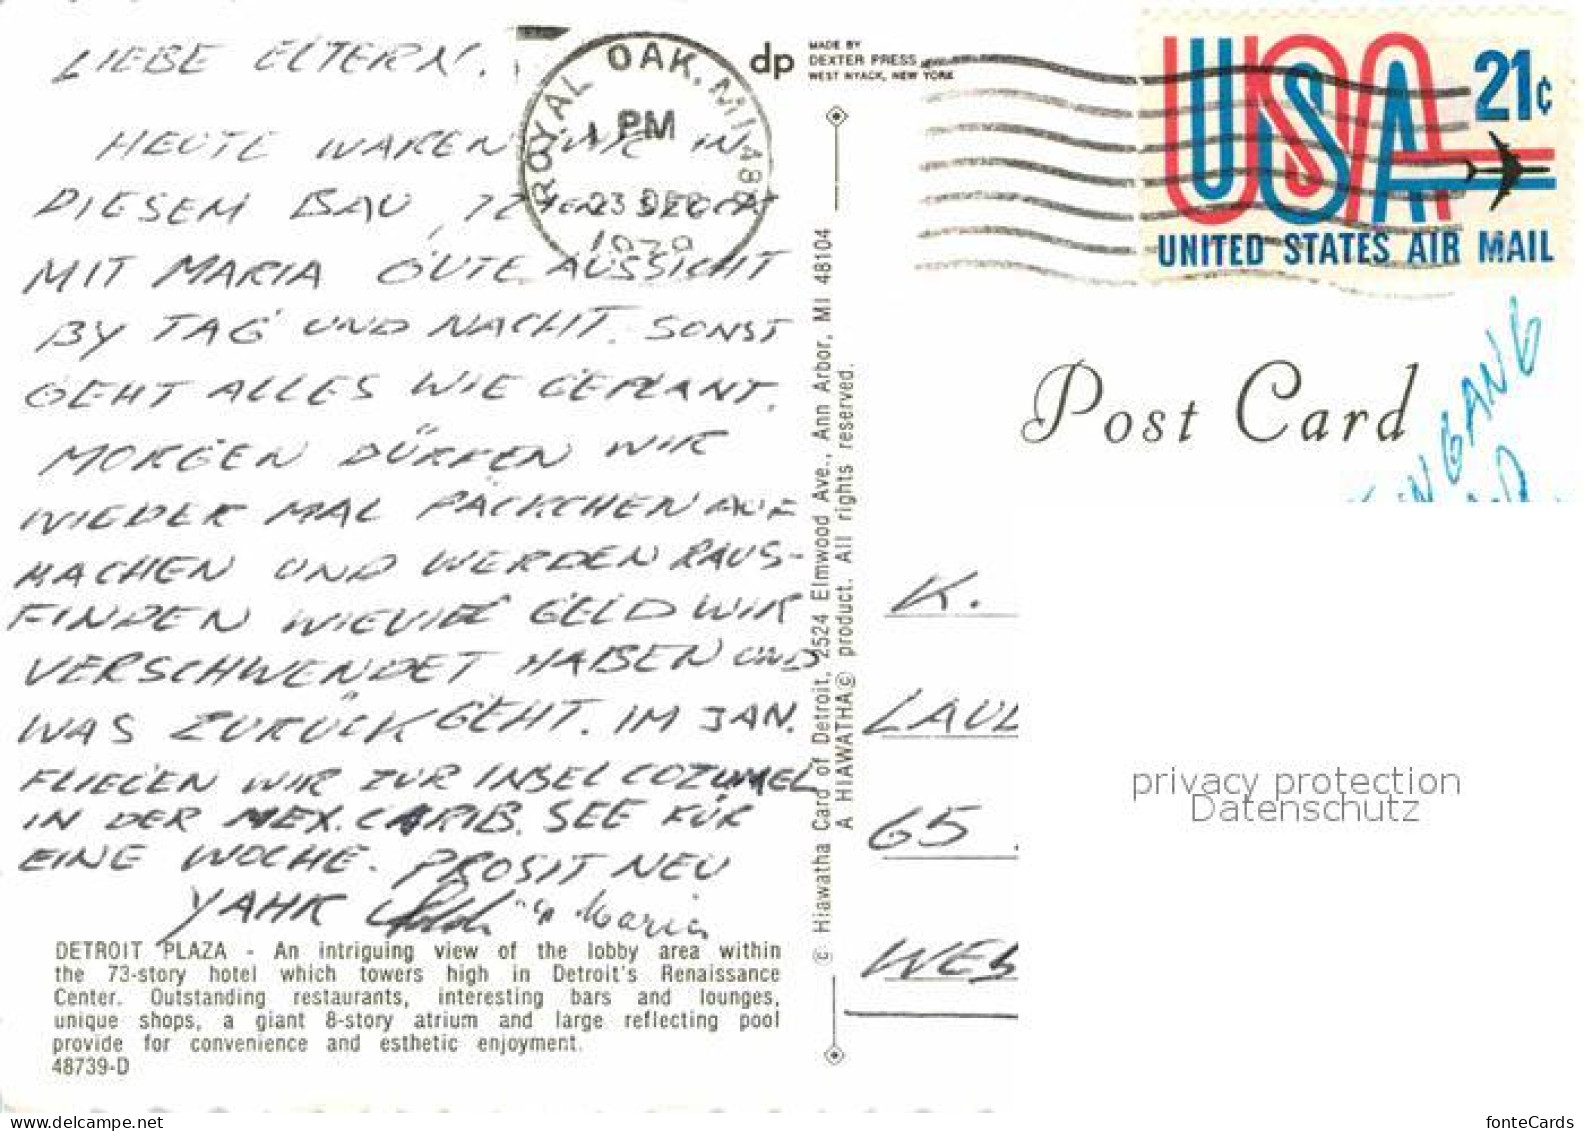 LIEBE ELTERN,
HEUTE WAREN WIR IN
DIESEM BAU, 72 STOCK
MIT MARIA GUTE AUSSICHT
BY TAG UND NACHT. SONST
GEHT ALLES WIE GEPLANT.
MORGEN DÜRFEN WIR
WIEDER MAL PÄCKCHEN AUF
MACHEN UND WERDEN RAUS-
FINDEN WIEVIEL GELD WIR
VERSCHWENDET HABEN UND
WAS ZURÜCK GEHT. IM JAN.
FLIEGEN WIR ZUR INSEL COZUMEL
IN DER MEX. CARIB. SEE FÜR
EINE WOCHE. PROSIT NEU
YAHR Maria
DETROIT PLAZA - An intriguing view of the lobby area within
the 73-story hotel which towers high in Detroit's Renaissance
Center. Outstanding restaurants, interesting bars and lounges,
unique shops, a giant 8-story atrium and large reflecting pool
provide for convenience and esthetic enjoyment.
48739-D
ROYAL OAK, MI 48
PM
23 DEC
1979
dp
MADE BY
DEXTER PRESS
WEST NYACK, NEW YORK
© Hiawatha Card of Detroit, 2524 Elmwood Ave., Ann Arbor, MI 48104
A HIAWATHA© product. All rights reserved.
USA
21¢
UNITED STATES AIR MAIL
Post Card
NGANG
K.
LAUL
65
WES
privacy protection
Datenschutz
www.delcampe.net
fonteCards